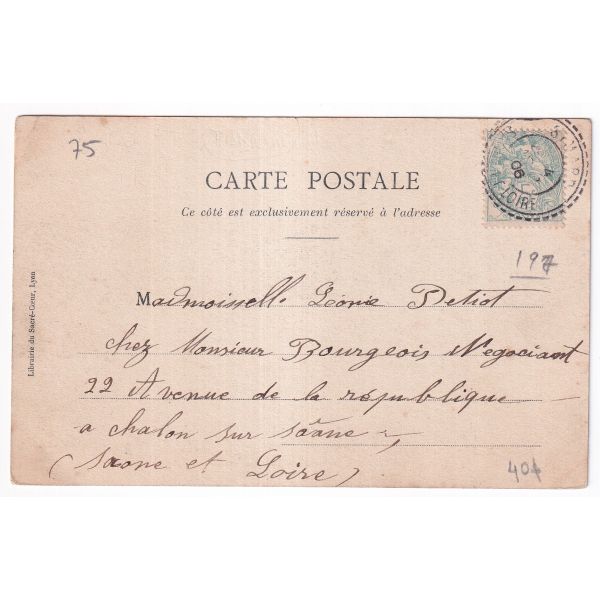 75
CARTE POSTALE
Ce côté est exclusivement réservé à l'adresse
197
Mademoiselle Léonie Petiot
chez Monsieur Bourgeois Negociant
22 Avenue de la république
a chalon sur saône
(saone et Loire)
40f
Librairie du Sacré-Cœur, Lyon
06
LOIRE